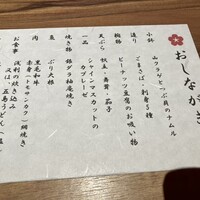 おしながき
小鉢 山クラゲとつぶ貝のナムル
造り ごまさば・刺身5種
椀物 ピーナッツ豆腐のお吸い物
天ぷら 帆立・舞茸・茄子
一品 シャインマスカットの
カプレーゼ
焼き物 銀ダラ柚庵焼き
豆 ぶり大根
肉 黒毛和牛
赤身(トモサンカク)網焼き
お食事 浅利の炊き込み
又は、五島うどん(温